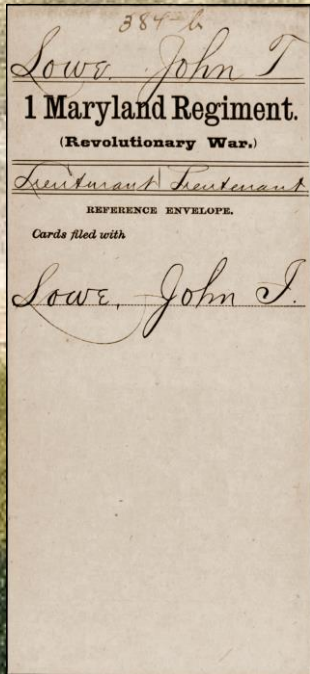 384 b
Lowe. John T
1 Maryland Regiment.
(Revolutionary War.)
Lieutenant | Lieutenant
REFERENCE ENVELOPE.
Cards filed with
Lowe, John T.